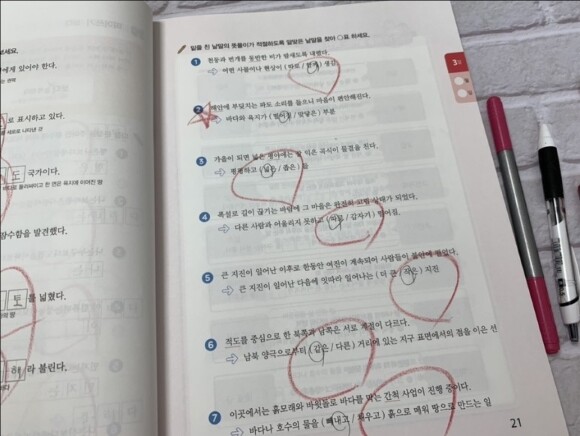 밑줄 친 낱말의 뜻풀이가 적절하도록 알맞은 낱말을 찾아 ○표 하세요.
1 천둥과 번개를 동반한 비가 밤새도록 내렸다.
⇨ 어떤 사물이나 현상이 ( 따로 / 함께 ) 생김
2 해안에 부딪치는 파도 소리를 들으니 마음이 편안해진다.
⇨ 바다와 육지가 ( 떨어진 / 맞닿은 ) 부분
3 가을이 되면 넓은 평야에는 잘 익은 곡식이 물결을 친다.
⇨ 평평하고 ( 넓은 / 좁은 ) 들
4 폭설로 길이 끊기는 바람에 그 마을은 완전히 고립 상태가 되었다.
⇨ 다른 사람과 어울리지 못하고 ( 따로 / 갑자기 ) 떨어짐.
5 큰 지진이 일어난 이후로 한동안 여진이 계속되어 사람들이 불안에 떨었다.
⇨ 큰 지진이 일어난 다음에 잇따라 일어나는 ( 더 큰 / 작은 ) 지진
6 적도를 중심으로 한 북쪽과 남쪽은 서로 계절이 다르다.
⇨ 남북 양극으로부터 ( 같은 / 다른 ) 거리에 있는 지구 표면에서의 점을 이은 선
7 이곳에서는 흙모래와 바윗돌로 바다를 막는 간척 사업이 진행 중이다.
⇨ 바다나 호수의 물을 ( 빼내고 / 채우고 ) 흙으로 메워 땅으로 만드는 일
21
3주
보세요.
에게 있어야 한다.
로 표시하고 있다.
도 국가이다.
함을 발견했다.
토 를 넓혔다.
해 라 불린다.